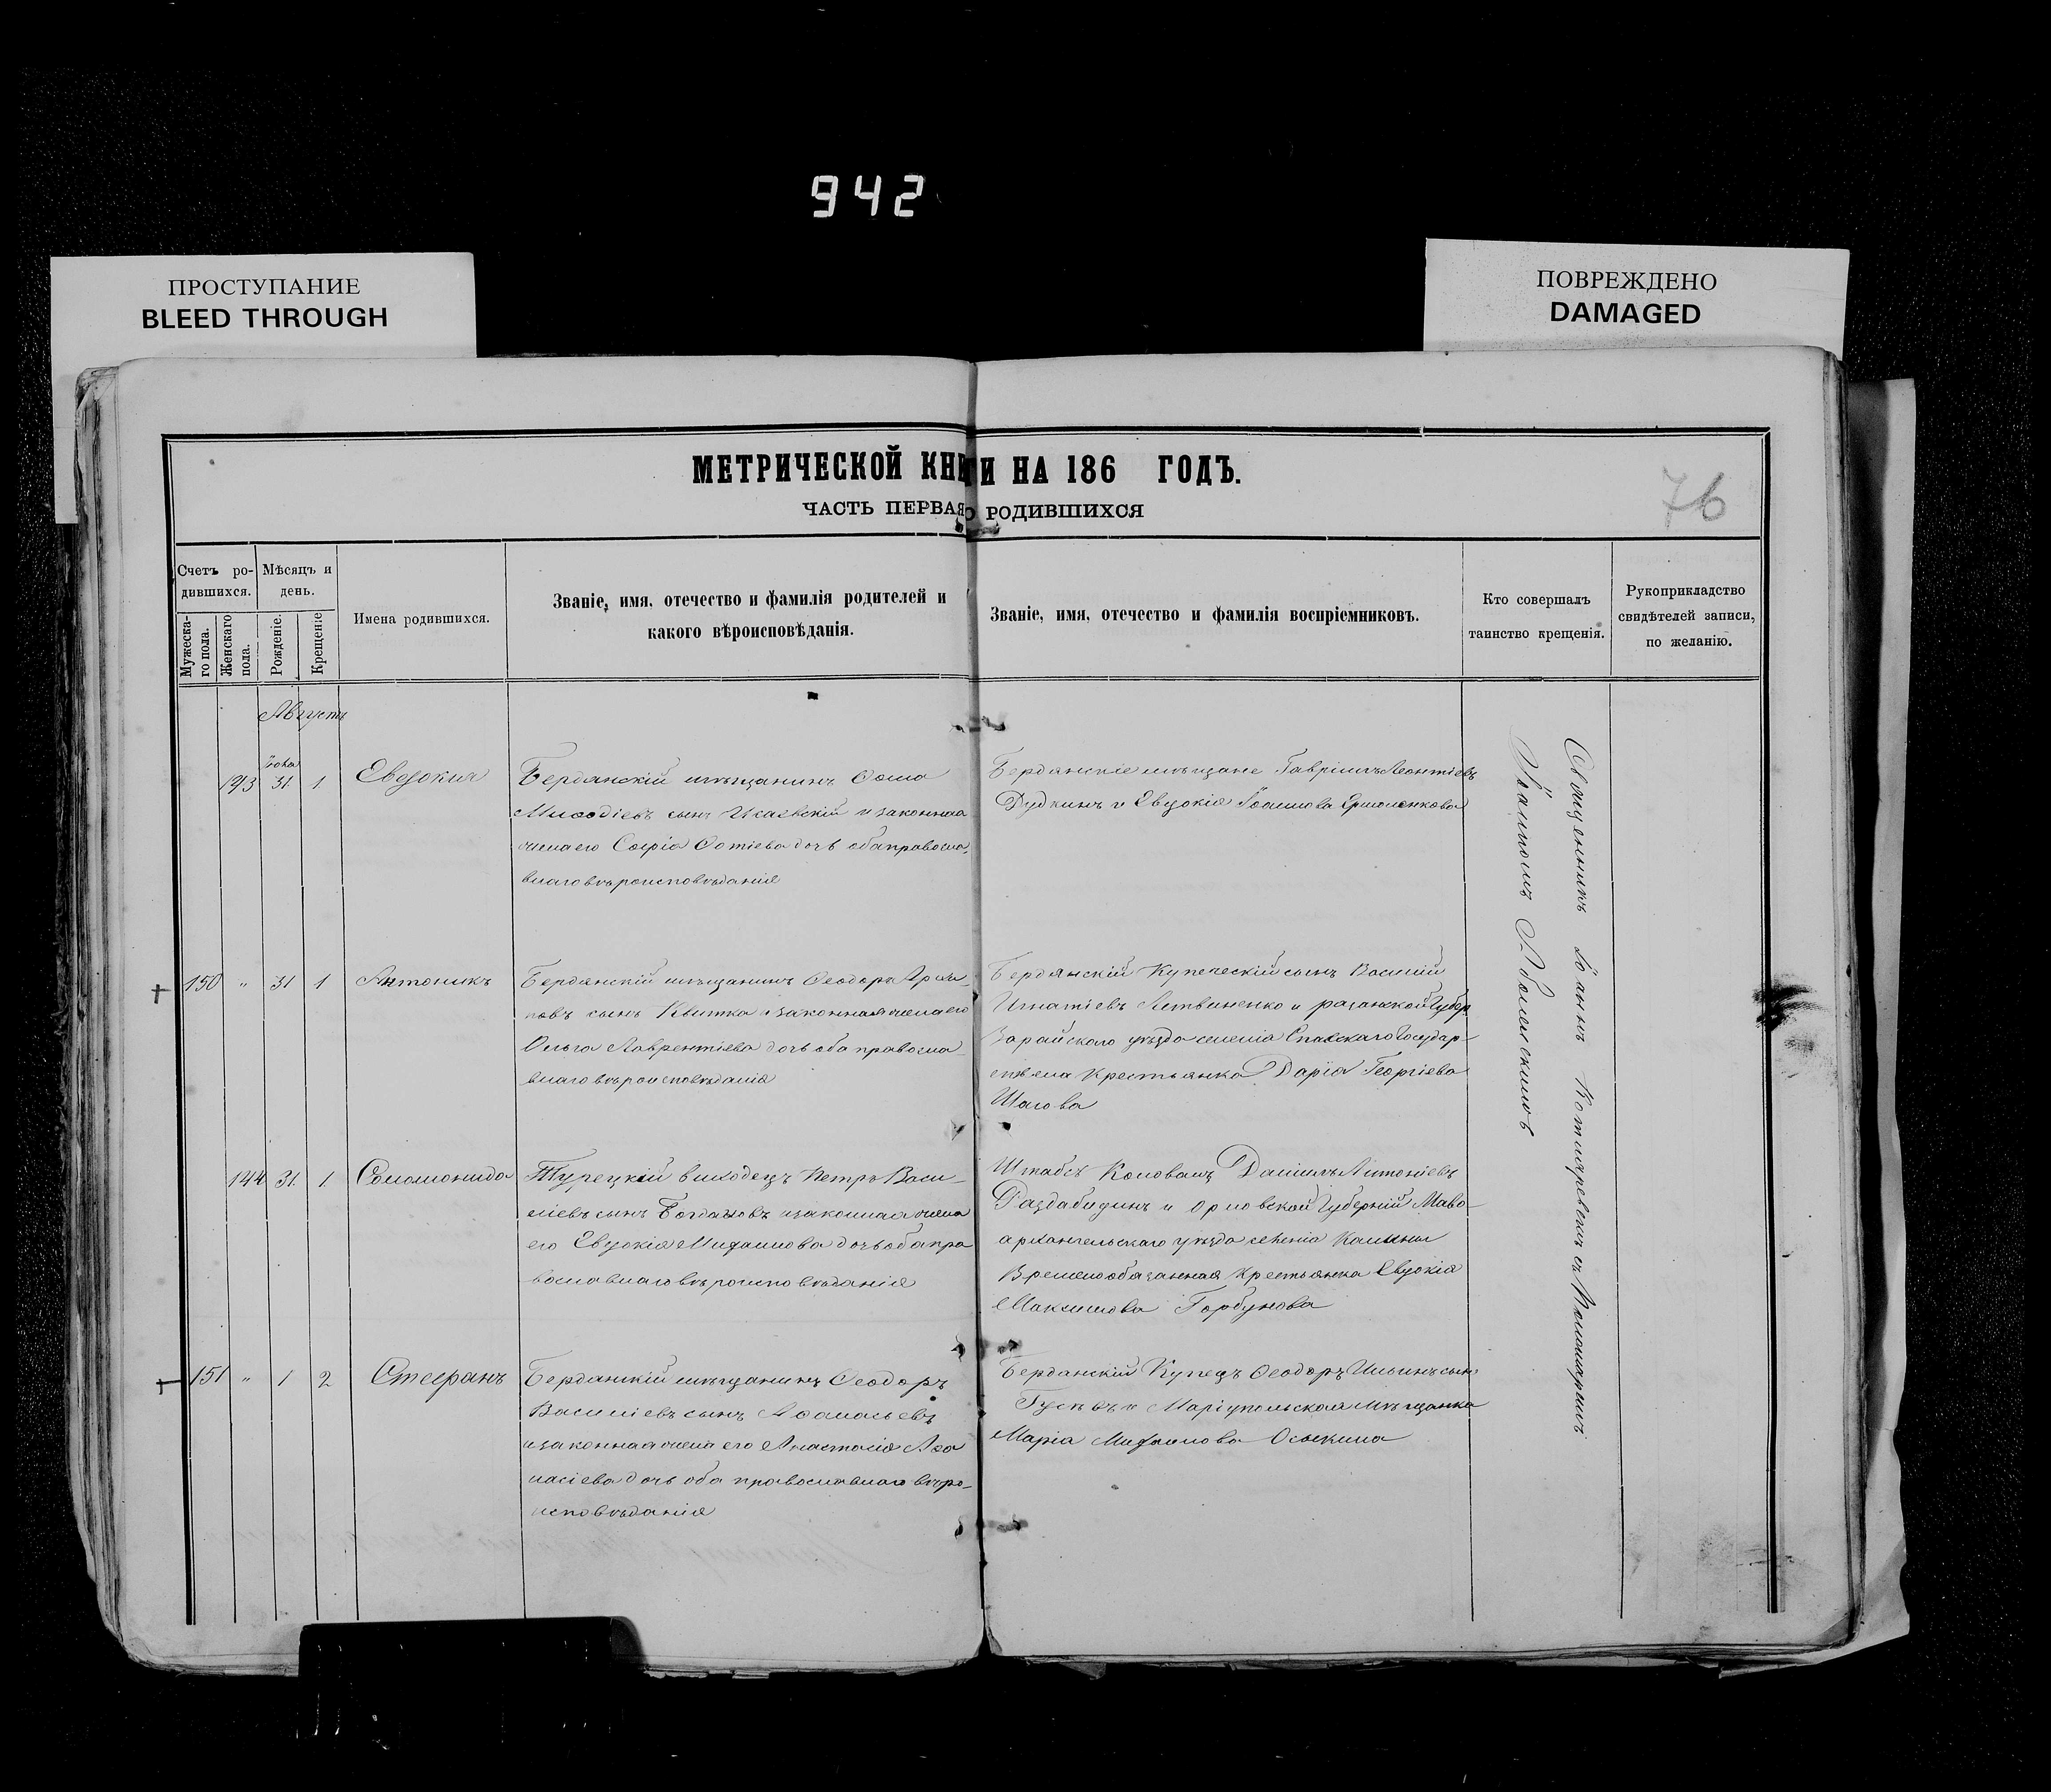 942
ПРОСТУПАНИЕ
BLEED THROUGH
ПОВРЕЖДЕНО
DAMAGED
МЕТРИЧЕСКОЙ КНИГИ НА 186 ГОДЪ.
ЧАСТЬ ПЕРВАЯ О РОДИВШИХСЯ
76
Счетъ ро-
дившихся.
Мужеска-
го пола.
Женскаго
пола.
Мѣсяцъ и
день.
Рожденіе.
Крещеніе
Имена родившихся.
Званіе, имя, отечество и фамилія родителей и
какого вѣроисповѣданія.
Званіе, имя, отечество и фамилія воспріемниковъ.
Кто совершалъ
таинство крещенія.
Рукоприкладство
свидѣтелей записи,
по желанію.
Августъ
31 1 Евдокия
Бердянскій мѣщанинъ Ѳома
Меѳодіевъ сынъ и законная
жена его Софія дочь оба православ-
внаго вѣроисповѣданія
Бердянскіе мѣщане Гавріилъ Леонтіевъ
Дудкинъ и Евдокія Ермоленкова
150 " 31 1
Бердянскій мѣщанинъ Ѳеодоръ
повъ сынъ Квитка и законная жена его
Ольга Лаврентіева дочь оба правосла-
внаго вѣроисповѣданія
Бердянскій Купеческій сынъ Василій
Игнатіевъ Литвиненко и рязанской Губер
Зарайскаго уѣзда селенія Спаскаго Государ-
ствена Крестьянка Дарія Георгіева
Шагова
144 31 1 Соломонида
Турецкій виходецъ Петръ Васи-
ліевъ сынъ Богдановъ и законная жена
его Евдокія Михаилова дочь оба пра
вославнаго вѣроисповѣданія
Штабсъ Даніилъ Антоніевъ
и Орловской Губерніи Мало-
архангельскаго уѣзда селенія
Временнообязанная Крестьянка Евдокія
Максимова Горбунова
151 " 1 2 Стефанъ
Бердянскій мѣщанинъ Ѳеодоръ
Василіевъ сынъ Аѳанасьевъ
и законная жена его Анастасія Аѳа
насіева дочь оба православнаго вѣро-
исповѣданія
Бердянскій Купецъ Ѳеодоръ Ильинъ сынъ
Гусевъ и Маріупольская мѣщанка
Марія Михаилова Оськина
Священникъ Іоаннъ съ Пономаремъ